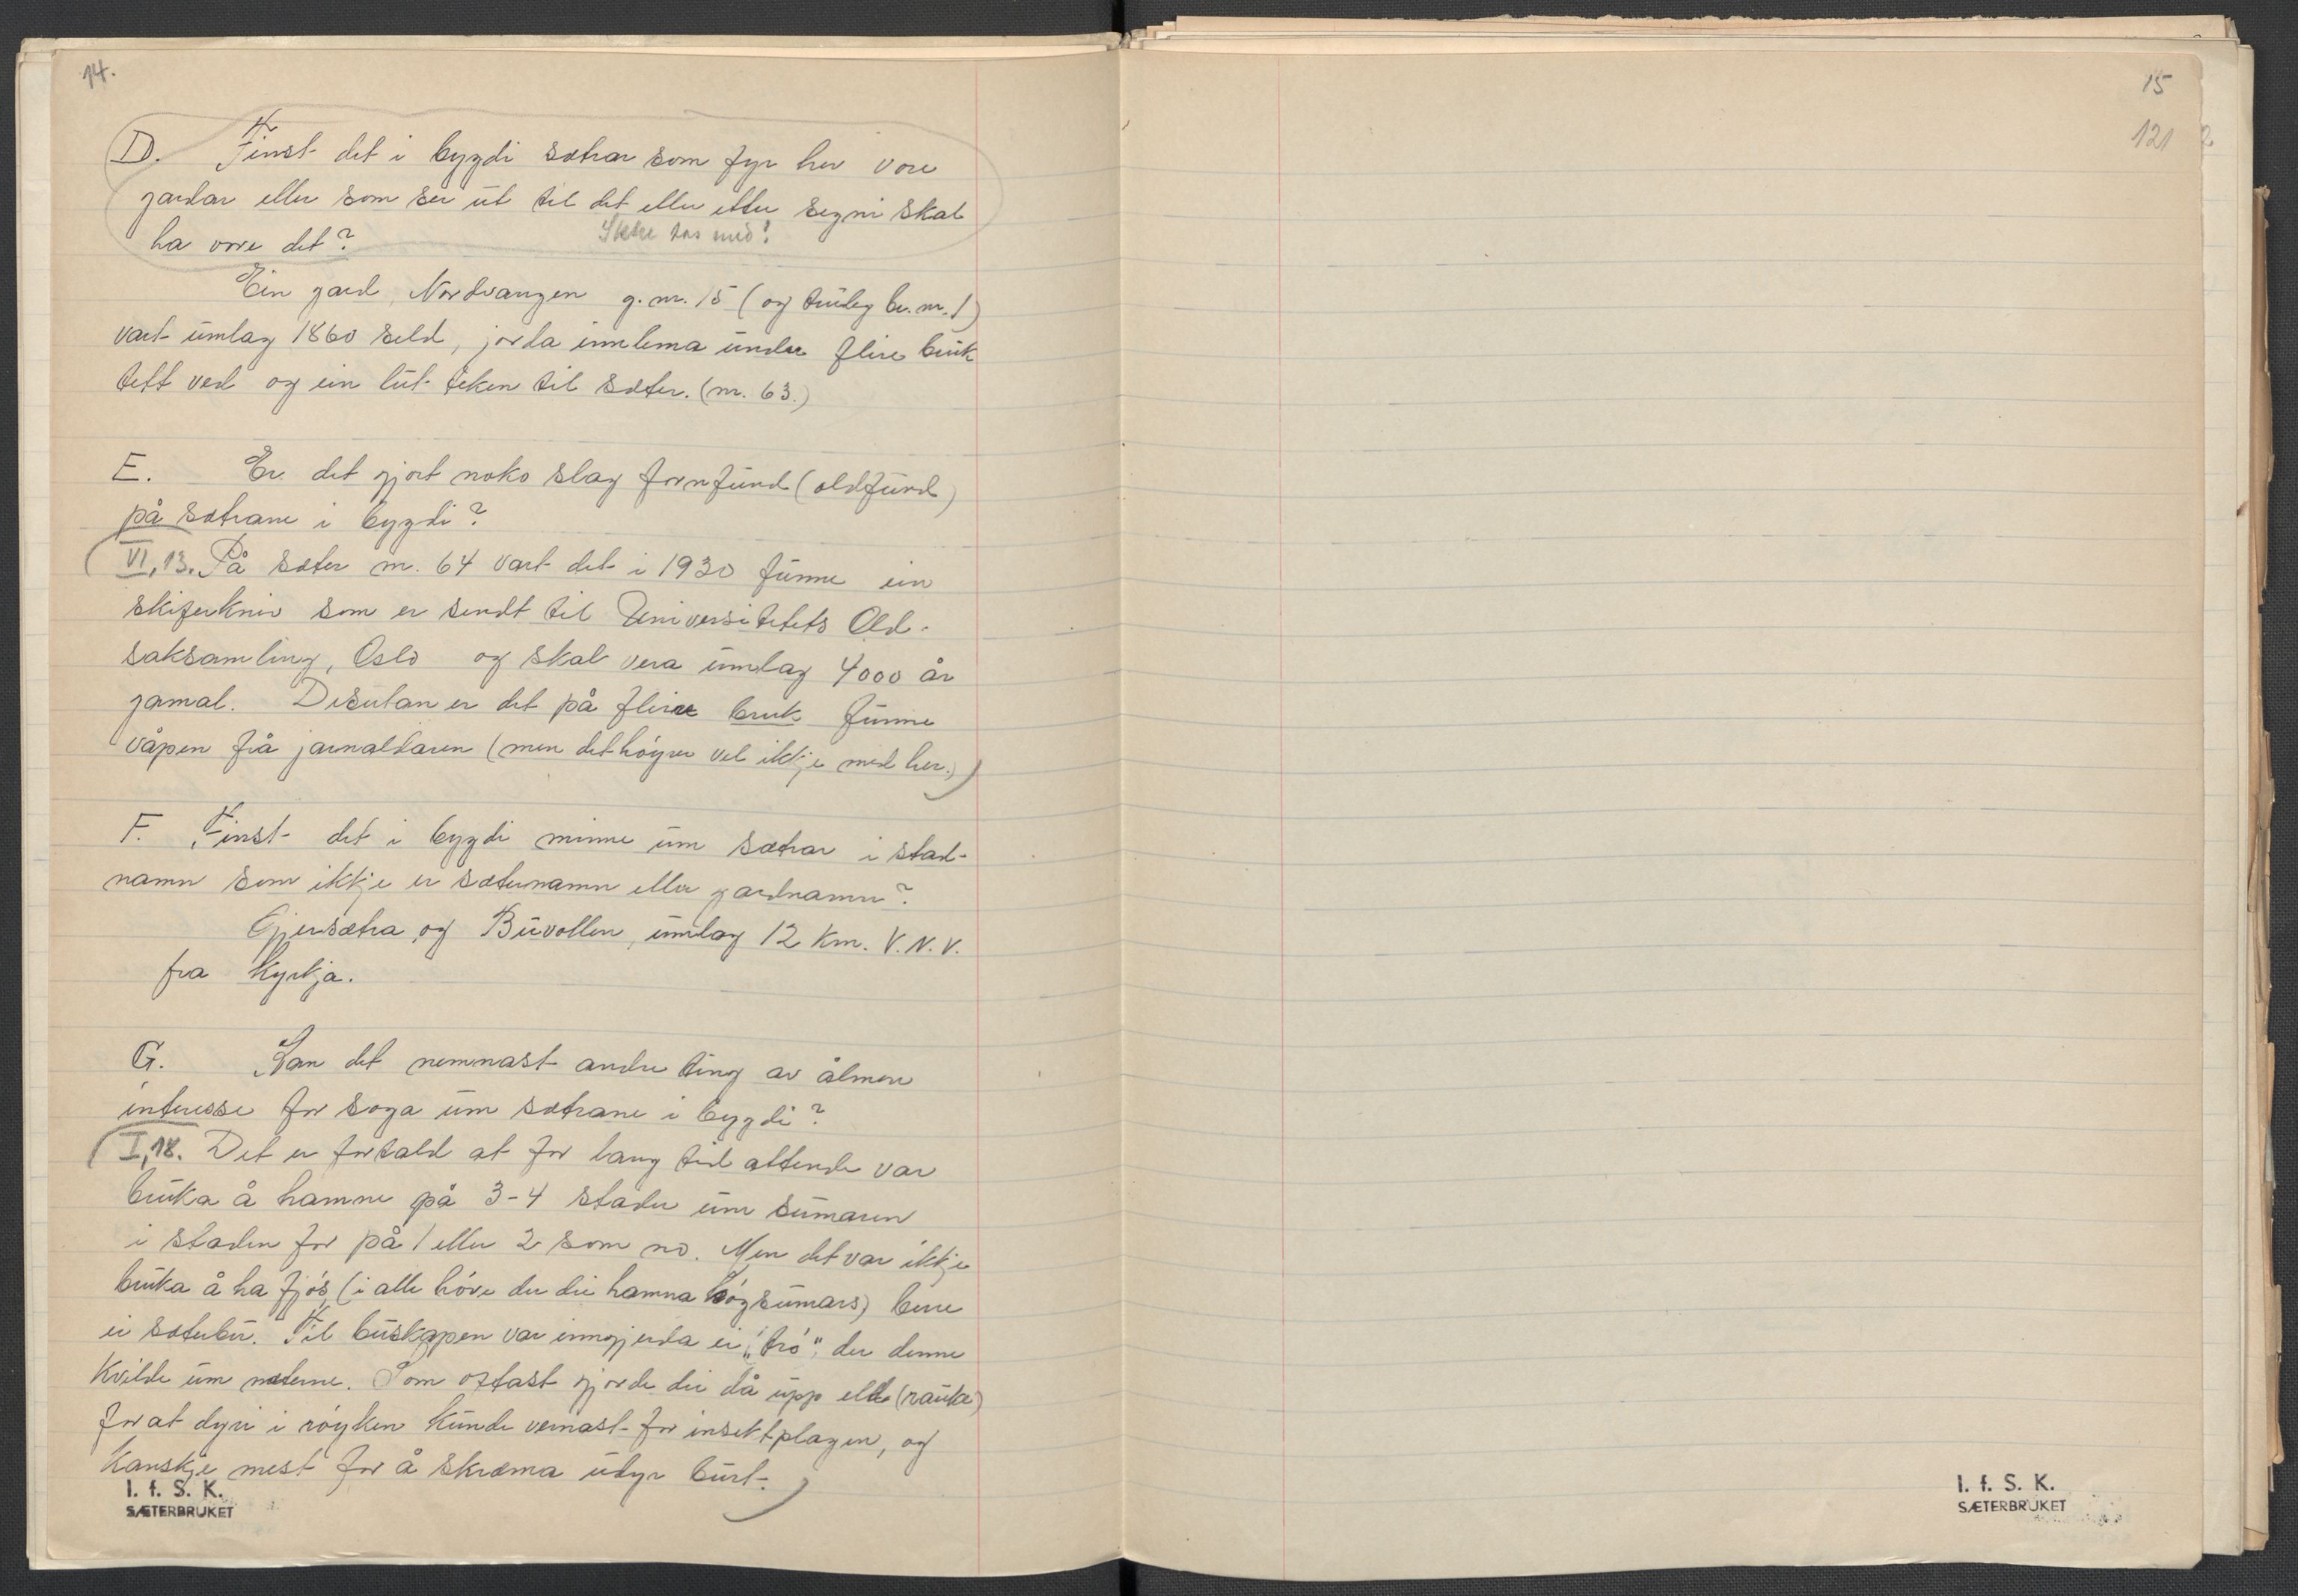 14.
D. Finst det i bygdi sætrar som fyr hev vore
gardar eller som ser ut til det eller etter segni skal
ha vore det? Ikke tas med!
Ein gard, Nordvangen g.nr. 15 (og truleg br.nr. 1)
vart umlag 1860 seld, jorda innlema under fleire bruk
tett ved og ein lut teken til sæter. (nr. 63.)
E. Er det gjort noko slag fornfund (oldfund)
på sætrane i bygdi?
VI, 13. På sæter nr. 64 vart det i 1930 funne ein
skiferkniv som er sendt til Universitetets Old-
saksamling, Oslo og skal vera umlag 4000 år
gamal. Desutan er det på fleire bruk funne
våpen frå jarnaldaren (men det høyrer vel ikkje med her.)
F. Finst det i bygdi minne um sætrar i stad-
namn som ikkje er sæternamn eller gardnamn?
Gjersætra og Buvollen, umlag 12 km. V.N.V.
fra kyrkja.
G. Kan det nemnast andre ting av ålmen
interesse for soga um sætrane i bygdi?
I, 18. Det er fortald at for lang tid attende var
bruka å hamne på 3-4 stader um sumaren
i staden for på 1 eller 2 som no. Men det var ikkje
bruka å ha fjós, (i alle høve der dei hamna høgsumars) berre
ei sæterbu. Til buskapen var inngjerda ei "tró", der denne
kvilde um næterne. Som oftast gjorde dei då upp eld (rauke)
for at dyri i røyken kunde vernast for insektplagen, og
kanskje mest for å skræma udyr burt.
I. f. S. K.
SÆTERBRUKET
15
121
2
I. f. S. K.
SÆTERBRUKET